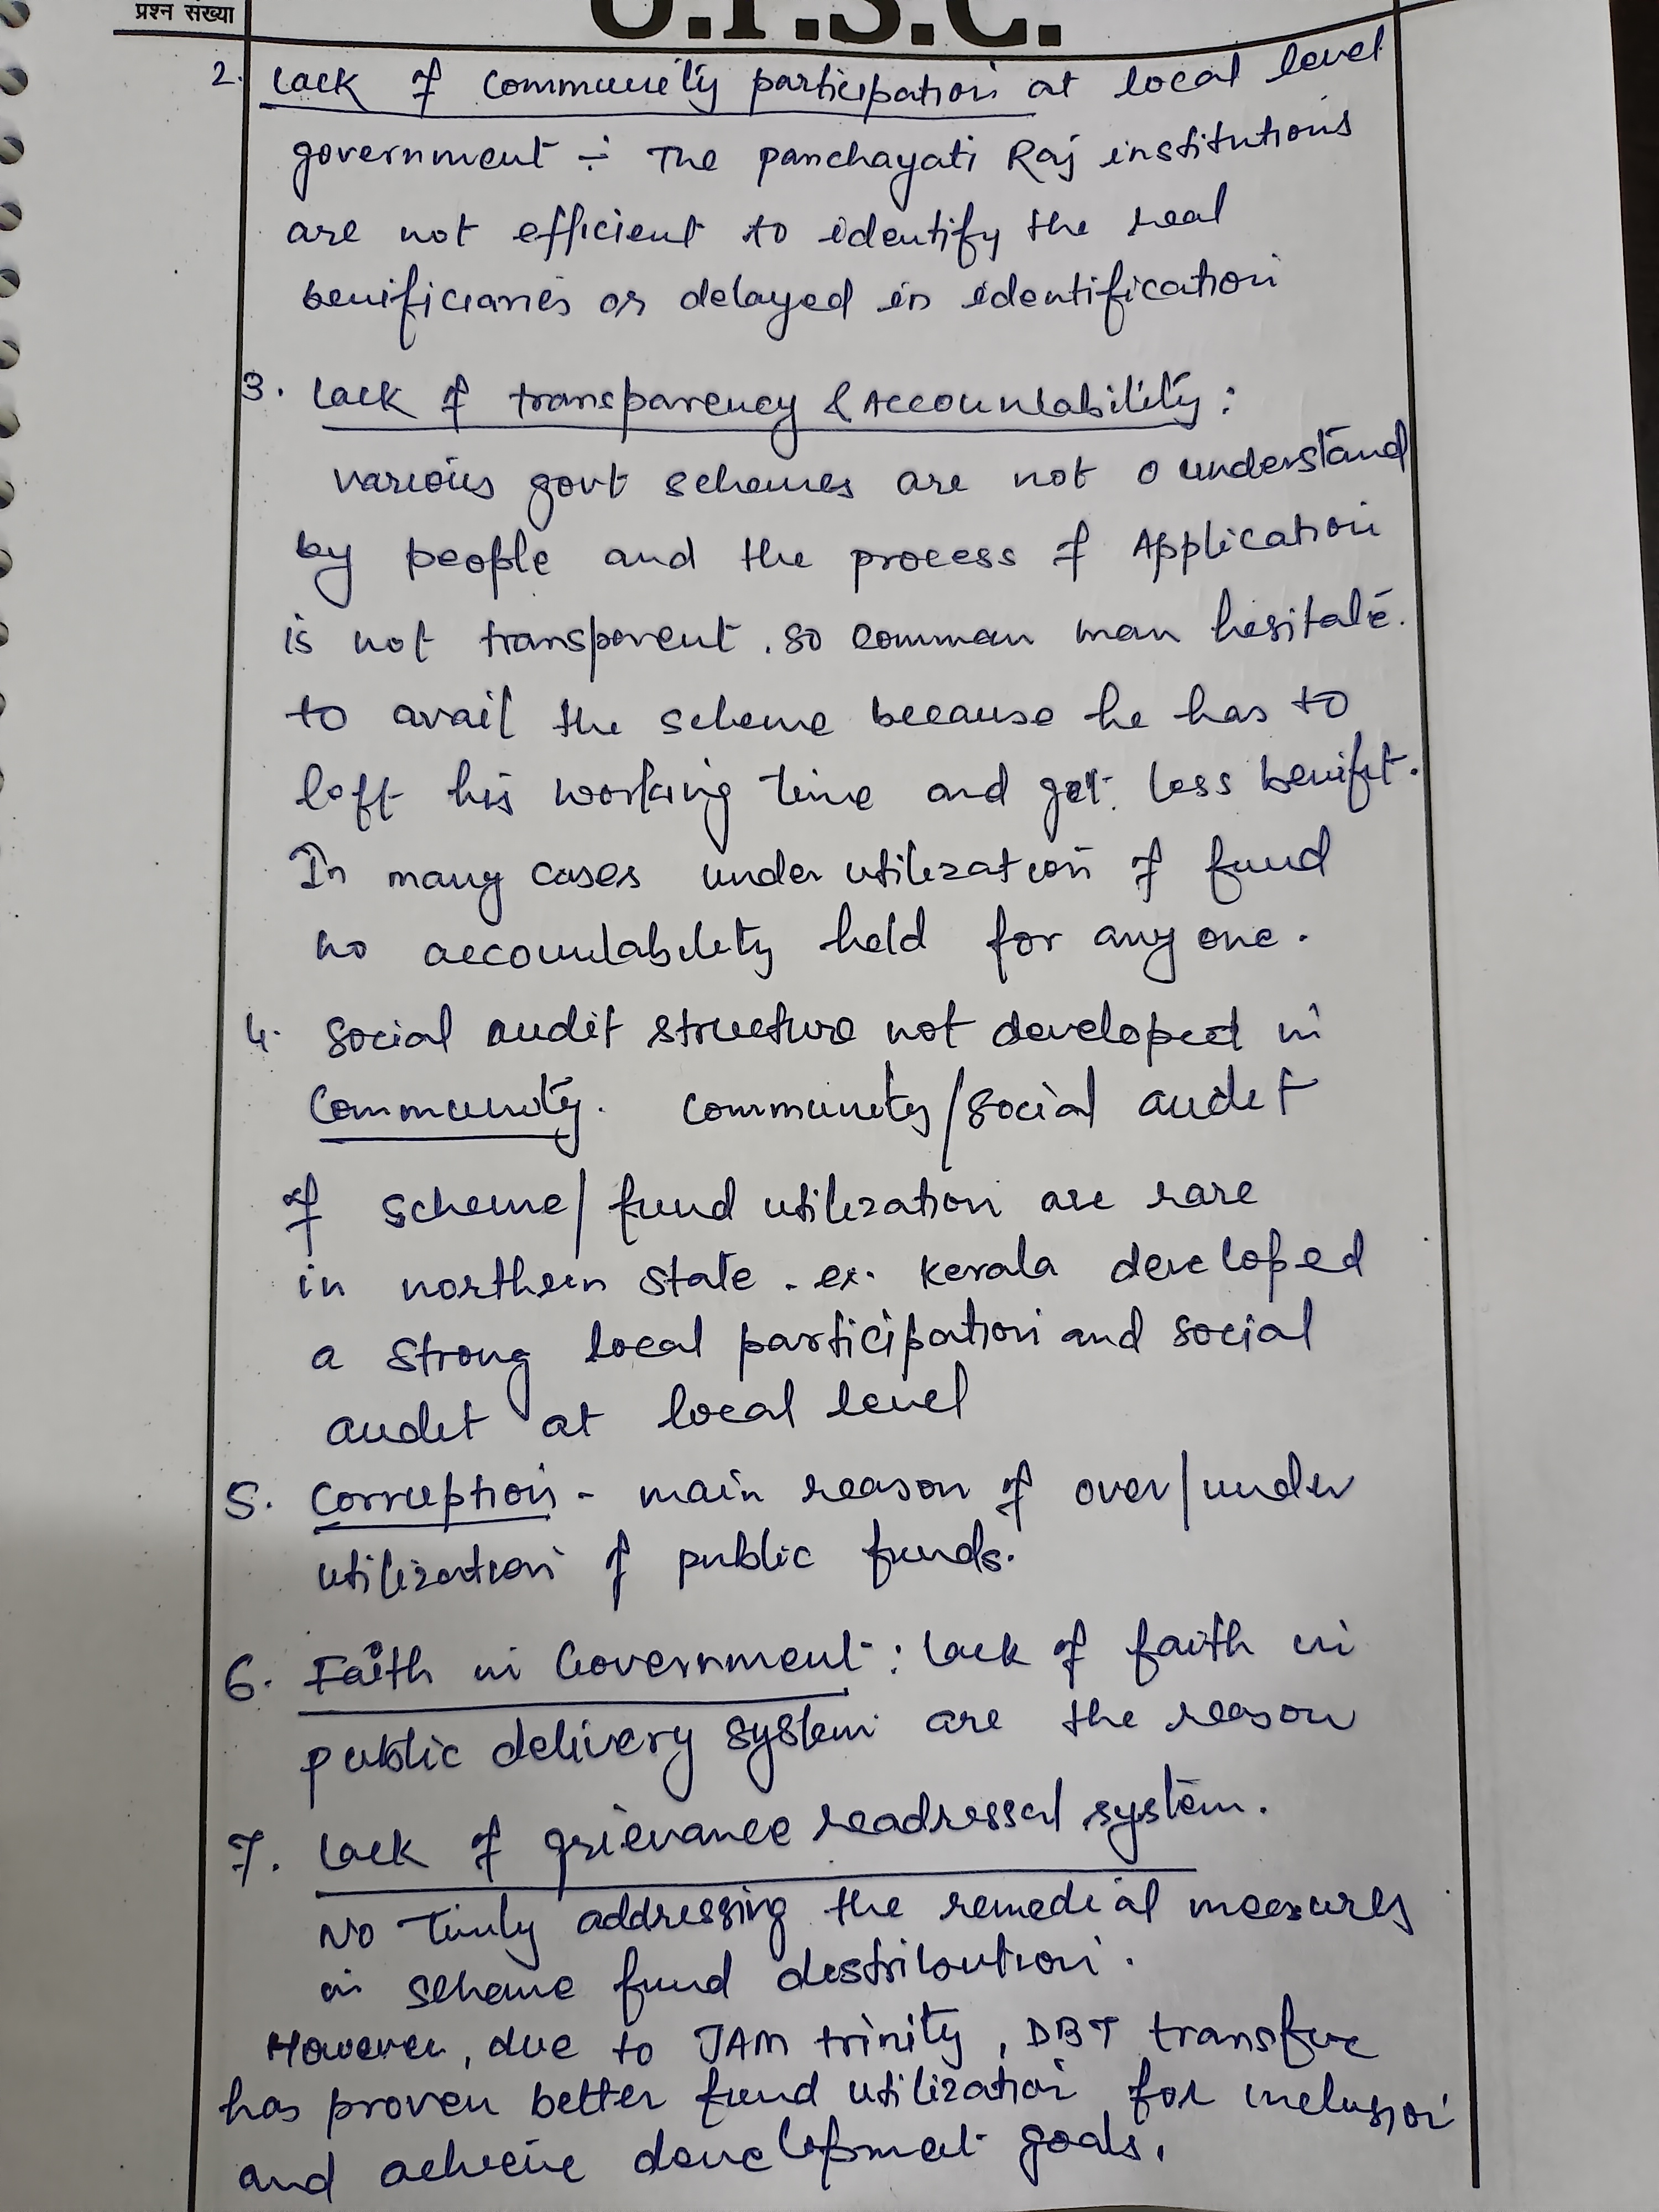 प्रश्न संख्या
U.P.S.C.
2. Lack of community participation at local level
government ÷ The panchayati Raj institutions
are not efficient to identify the real
benificiaries or delayed in identification
3. Lack of transparency & Accountability :
various govt schemes are not understand
by people and the process of Application
is not transparent. so common man hesitate.
to avail the scheme because he has to
left his working time and get less benifit.
In many cases under utilization of fund
no accountability held for any one.
4. Social audit structure not developed in
Community. community/social audit
of scheme/fund utilization are rare
in northern state. ex. Kerala developed
a strong local participation and social
audit at local level
5. Corruption - main reason of over/under
utilization of public funds.
6. Faith in Government : lack of faith in
public delivery system are the reason
7. Lack of grievance readressal system.
No timly addressing the remedial measures
in scheme fund distribution.
However, due to JAM trinity, DBT transfer
has proven better fund utilization for inclusion
and achieve development goals.